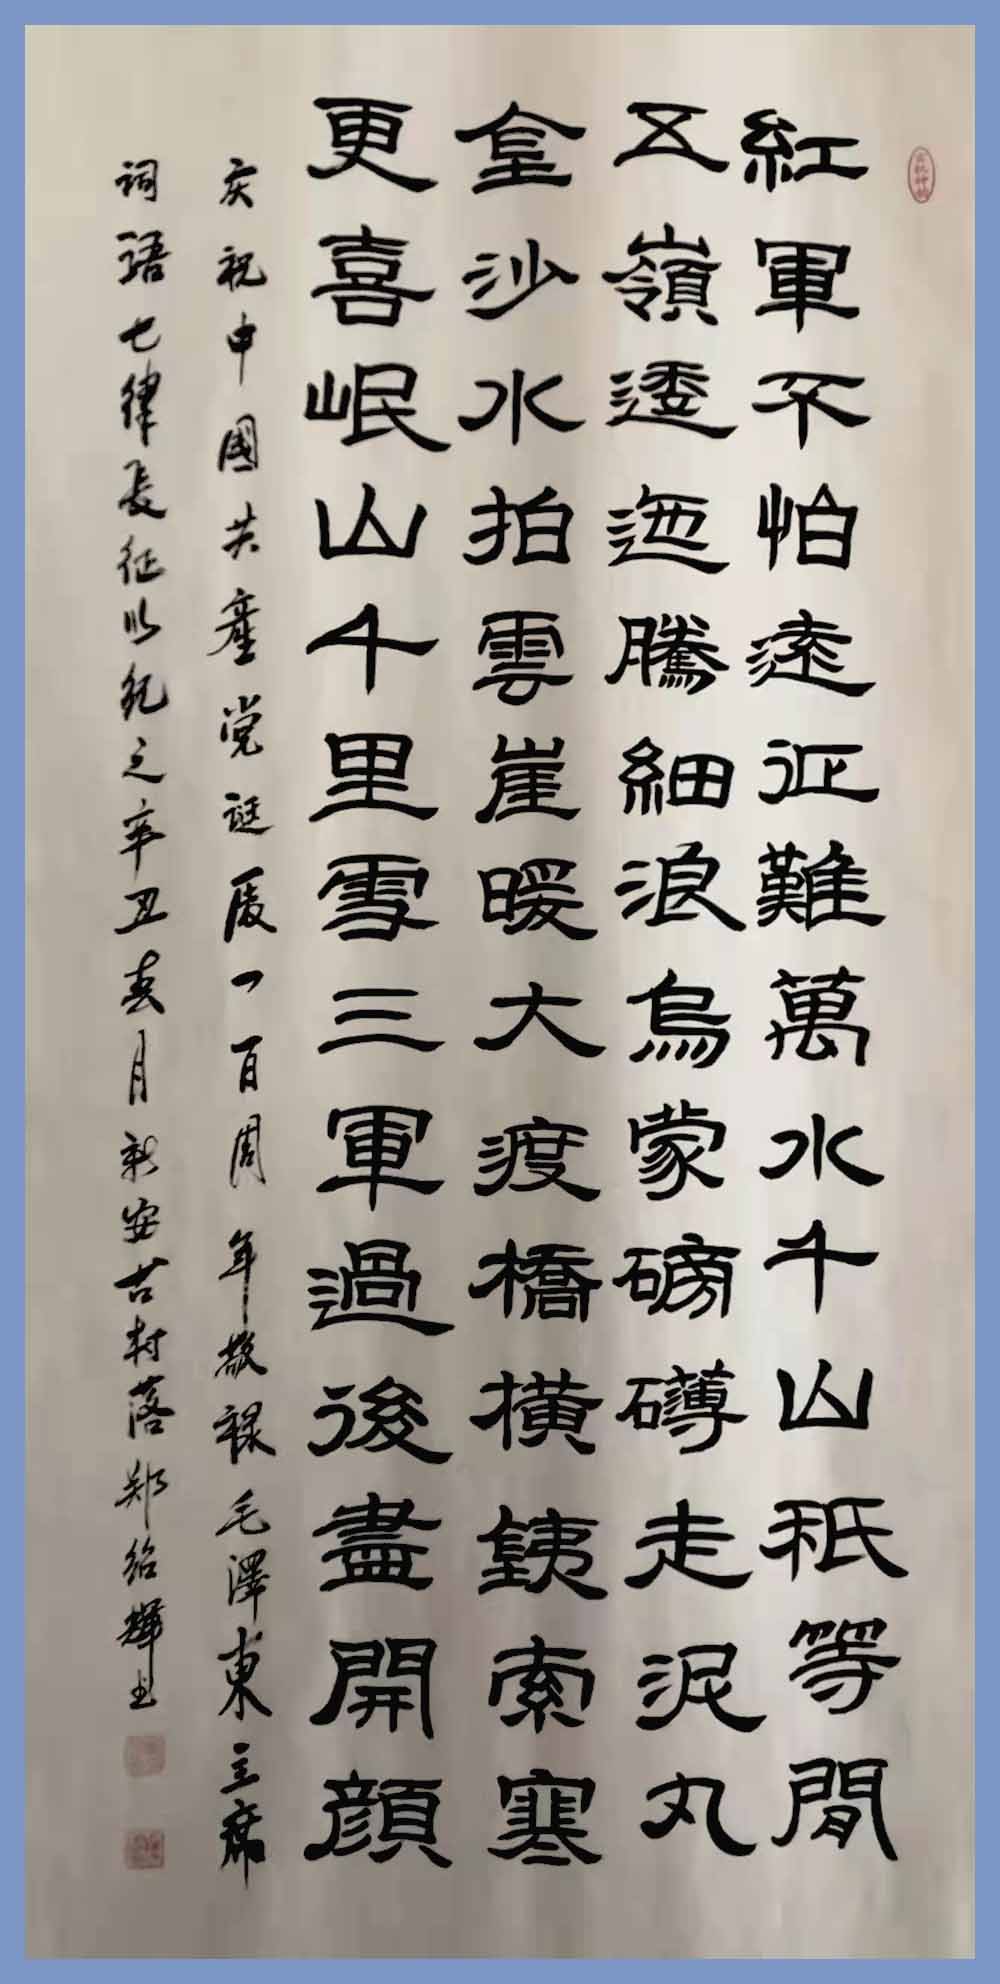 紅軍不怕遠征難萬水千山秖等閒
五嶺逶迤騰細浪烏蒙磅礴走泥丸
金沙水拍雲崖暖大渡橋橫銕索寒
更喜岷山千里雪三軍過後盡開顏
庆祝中國共產党诞辰一百周年敬録毛澤東主席
词語七律長征以纪之辛丑春月新安古村落郑绍辉书